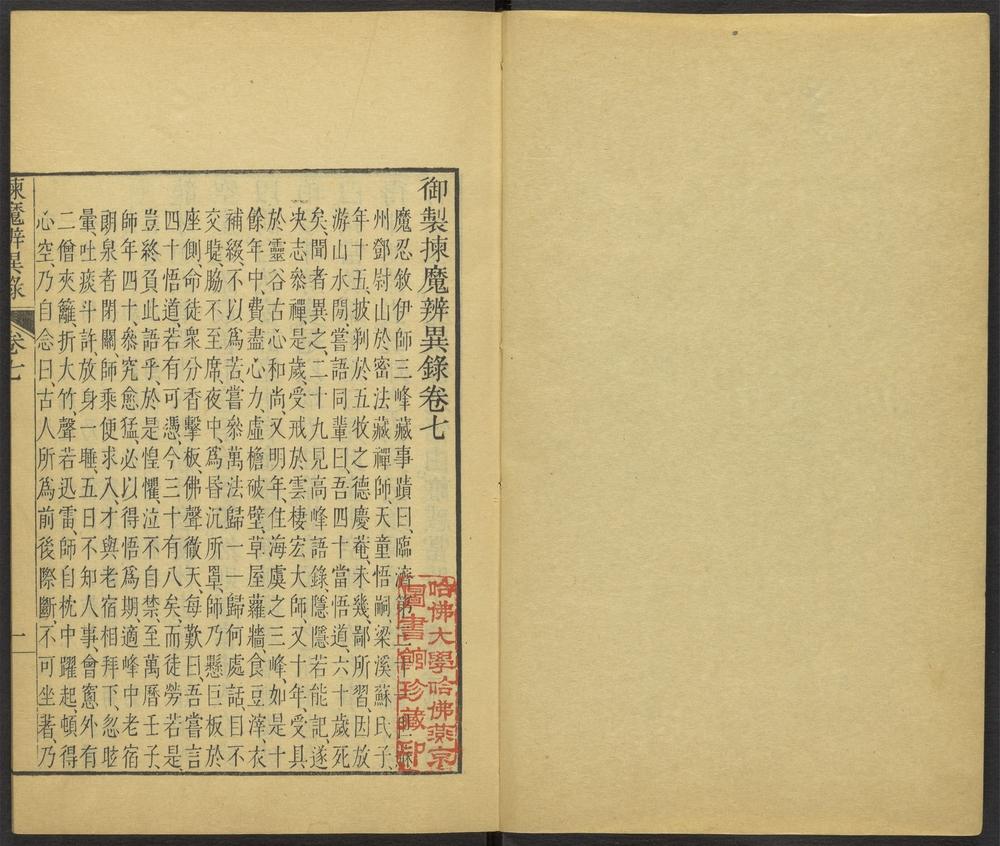 御製揀魔辨異錄卷七
魔忍敘伊師三峰藏事蹟曰、臨濟第三十
州鄧尉山於密法藏禪師、天童悟嗣、梁溪蘇氏子、
年十五、披剃於五牧之德慶菴、未幾、鄙所習、因放
游山水閒、嘗語同輩曰、吾四十當悟道、六十歲死
矣、聞者異之、二十九見高峰語錄、隱隱若能記、遂
決志叅禪、是歲、受戒於雲棲宏大師、又十年、受具
於靈谷古心和尚、又明年、住海虞之三峰、如是十
餘年中、費盡心力、虛檐破壁、草屋蘿牆、食豆滓、衣
補綴、不以爲苦、嘗叅萬法歸一一歸何處話、目不
交睫、脇不至席、夜中、爲昏沉所罩、師乃懸巨板於
座側、命徒衆分香擊板、佛聲徹天、每歎曰、吾嘗言
四十悟道、若有可憑、今三十有八矣、而徒勞若是、
豈終負此語乎、於是惶懼、泣不自禁、至萬曆壬子、
師年四十、叅究愈猛、必以得悟爲期、適峰中老宿
朗泉者閉關、師乘便求入、才與老宿相拜下、忽眩
暈、吐痰斗許、放身一睡、五日不知人事、會窻外有
二僧夾籬、折大竹、聲若迅雷、師自枕中躍起、頓得
心空、乃自念曰、古人所爲前後際斷、不可坐著、乃
揀魔辨異錄
卷七
一
哈佛大學哈佛燕京
圖書館珍藏印